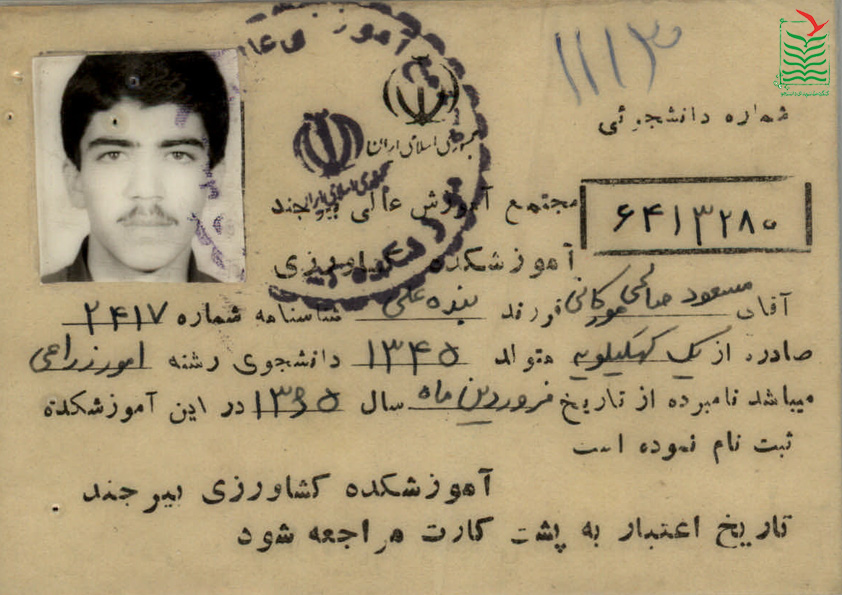 ۱۱۱۳
شماره دانشجوئی
جمهوری اسلامی ایران
مجتمع آموزش عالی بیرجند
۶۴۱۳۲۸۰
آموزشکده کشاورزی
آقای مسعود صالحی فرزند بنده علی شناسنامه شماره ۲۴۱۷
صادره از یک کهکیلویه متولد ۱۳۴۵ دانشجوی رشته امور زراعی
میباشد نامبرده از تاریخ فروردین ماه سال ۱۳۶۵ در این آموزشکده
ثبت نام نموده است
آموزشکده کشاورزی بیرجند
تاریخ اعتبار به پشت کارت مراجعه شود